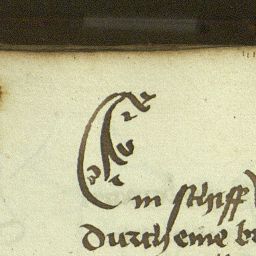 Ein schiff
durch eine b